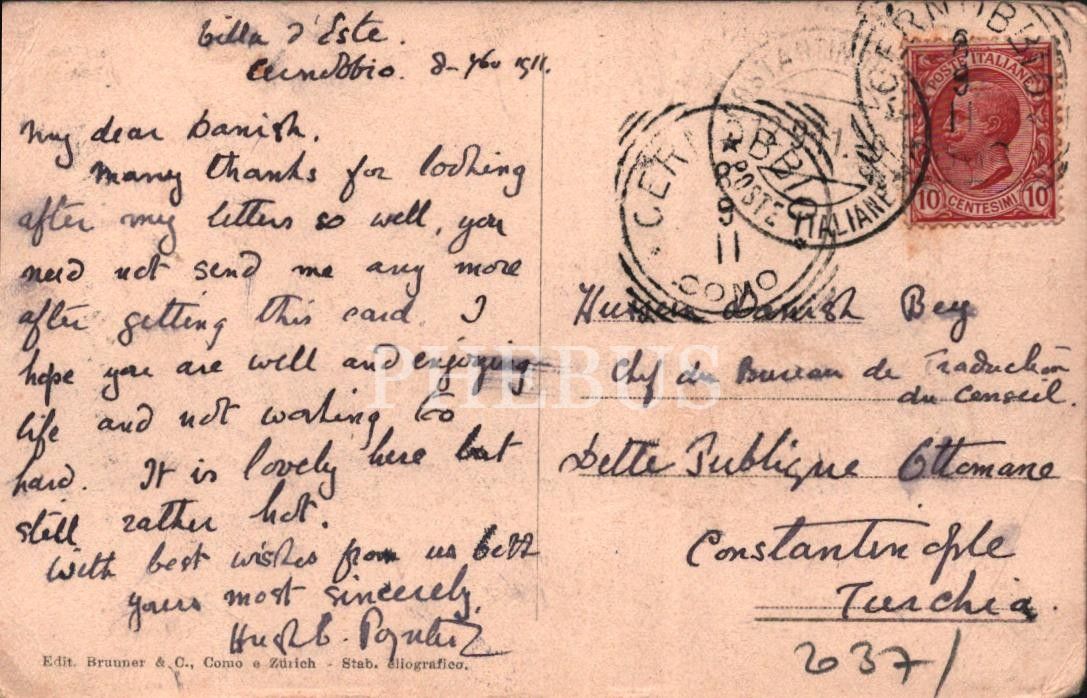 Villa d'Este.
Cernobbio. 8- 7bre 1911.
My dear Danish.
Many thanks for looking
after my letters so well, you
need not send me any more
after getting this card. I
hope you are well and enjoying
life and not working too
hard. It is lovely here but
still rather hot.
With best wishes from us both
yours most sincerely,
Hugh C. Poynter
Edit. Brunner & C., Como e Zürich - Stab. eliografico.
CERNOBBIO
8 9 11
COMO
CONSTANTIN
POSTE ITALIANE
CERNOBBIO
8 9 11
POSTE ITALIANE
10 CENTESIMI 10
Hussein Danish Bey
Chef du Bureau de Traduction
du Conseil.
Dette Publique Ottomane
Constantinople
Turchia.
237/
PHEBUS